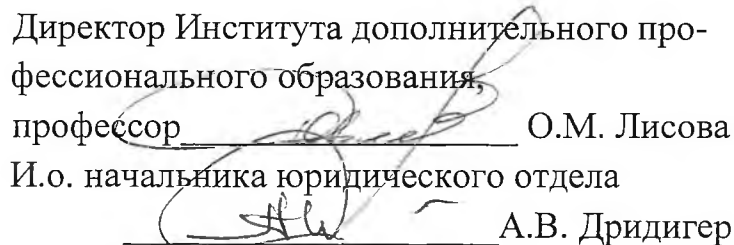 Директор Института дополнительного про-
фессионального образования,
профессор____________________ О.М. Лисова
И.о. начальника юридического отдела
______________________А.В. Дридигер